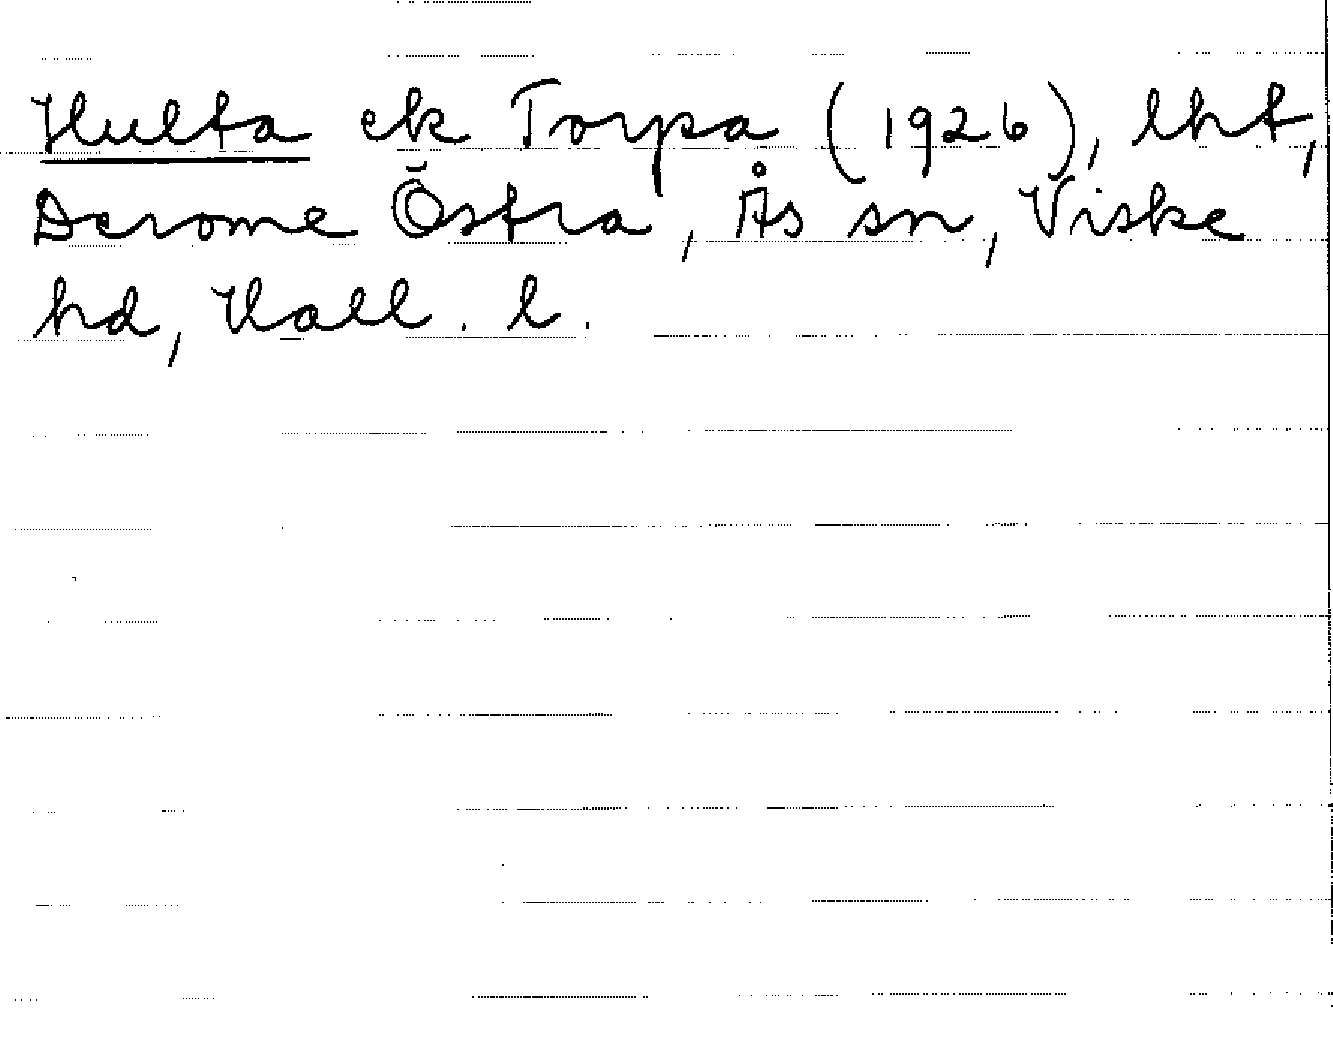 Hulta ek Torpa (1926), lht,
Derome Östra, Ås sn, Viske
hd, Hall. l.